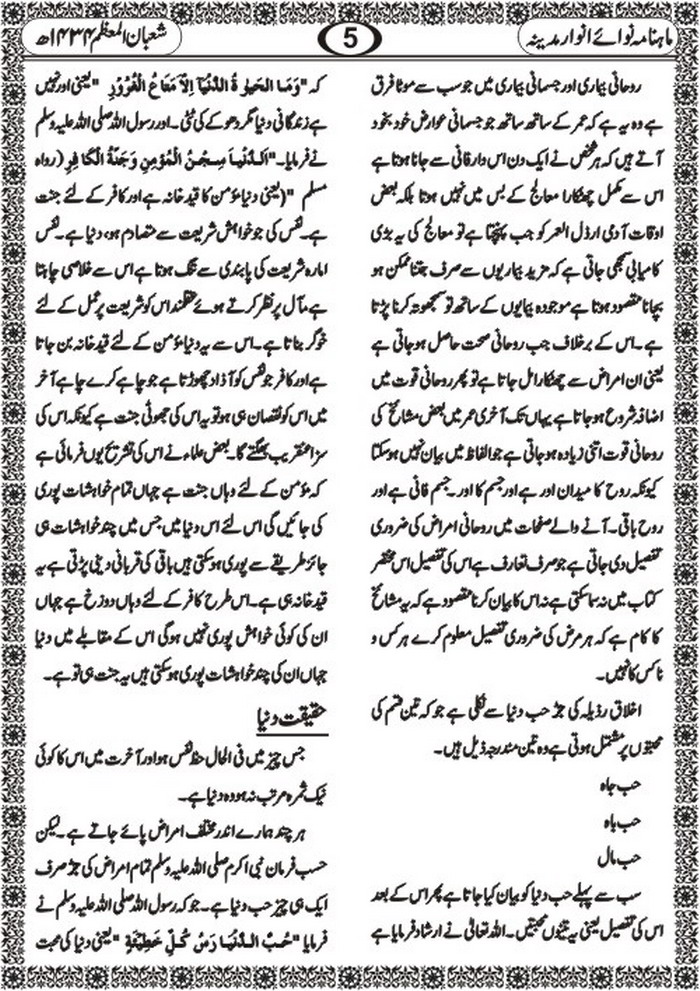 ماہنامہ نوائے انوار مدینہ
5
شعبان المعظم ۱۴۳۴ھ
روحانی بیماری اور جسمانی بیماری میں جو سب سے موٹا فرق
ہے وہ یہ ہے کہ عمر کے ساتھ ساتھ جو جسمانی عوارض خود بخود
آتے ہیں کہ ہر شخص نے ایک دن اس دار فانی سے جانا ہوتا ہے
اس سے مکمل چھٹکارا معالج کے بس میں نہیں ہوتا بلکہ بعض
اوقات آدمی ارذل العمر کو جب پہنچتا ہے تو معالج کی یہ بڑی
کامیابی سمجھی جاتی ہے کہ مزید بیماریوں سے صرف جتنا ممکن ہو
بچانا مقصود ہوتا ہے موجودہ بیمایوں کے ساتھ تو سمجھوتہ کرنا پڑتا
ہے۔ اس کے برخلاف جب روحانی صحت حاصل ہوجاتی ہے
یعنی ان امراض سے چھٹکارا مل جاتا ہے تو پھر روحانی قوت میں
اضافہ شروع ہوجاتا ہے یہاں تک آخری عمر میں بعض مشائخ کی
روحانی قوت اتنی زیادہ ہوجاتی ہے جو الفاظ میں بیان نہیں ہوسکتا
کیونکہ روح کا میدان اور ہے اور جسم کا اور۔ جسم فانی ہے اور
روح باقی۔ آنے والے صفحات میں روحانی امراض کی ضروری
تفصیل دی جاتی ہے جو صرف تعارف ہے اس کی تفصیل اس مختصر
کتاب میں نہ سما سکتی ہے نہ اس کا بیان کرنا مقصود ہے کہ یہ مشائخ
کا کام ہے کہ ہر مرض کی ضروری تفصیل معلوم کرے ہر کس و
ناکس کا نہیں۔
اخلاق رذیلہ کی جڑ حب دنیا سے نکلی ہے جو کہ تین قسم کی
محبتوں پر مشتمل ہوتی ہے وہ تین مندرجہ ذیل ہیں۔
حب جاہ
حب باہ
حب مال
سب سے پہلے حب دنیا کو بیان کیا جاتا ہے پھر اس کے بعد
اس کی تفصیل یعنی یہ تینوں محبتیں۔ اللہ تعالیٰ نے ارشاد فرمایا ہے
کہ "وَمَا الْحَیٰوةُ الدُّنْیَآ اِلَّا مَتَاعُ الْغُرُوْرِ" یعنی اور نہیں
ہے زندگانی دنیا مگر دھوکے کی ٹٹی۔ اور رسول اللہ صلی اللہ علیہ وسلم
نے فرمایا۔ "اَلدُّنْیَا سِجْنُ الْمُؤْمِنِ وَجَنَّةُ الْکَافِرِ (رواہ
مسلم "(یعنی دنیا مؤمن کا قید خانہ ہے اور کافر کے لئے جنت
ہے۔ نفس کی جو خواہش شریعت سے متصادم ہو، دنیا ہے۔ نفس
امارہ شریعت کی پابندی سے تنگ ہوتا ہے اس سے خلاصی چاہتا
ہے مآل پر نظر کرتے ہوئے عقلمند اس کو شریعت پر عمل کے لئے
خوگر بناتا ہے۔ اس سے یہ دنیا مؤمن کے لئے قید خانہ بن جاتا
ہے اور کافر جو نفس کو آزاد چھوڑتا ہے جو چاہے کرے چاہے آخر
میں اس کو نقصان ہی ہو تو یہ اس کی جھوٹی جنت ہے کیونکہ اس کی
سزا عنقریب بھگتے گا۔ بعض علماء نے اس کی تشریح یوں فرمائی ہے
کہ مؤمن کے لئے وہاں جنت ہے جہاں تمام خواہشات پوری
کی جائیں گی اس لئے اس دنیا میں جس میں چند خواہشات ہی
جائز طریقے سے پوری ہوسکتی ہیں باقی کی قربانی دینی پڑتی ہے یہ
قید خانہ ہی ہے۔ اس طرح کافر کے لئے وہاں دوزخ ہے جہاں
ان کی کوئی خواہش پوری نہیں ہوگی اس کے مقابلے میں دنیا
جہاں ان کی چند خواہشات پوری ہوسکتی ہیں یہ جنت ہی تو ہے۔
حقیقت دنیا
جس چیز میں فی الحال حظ نفس ہو اور آخرت میں اس کا کوئی
نیک ثمرہ مرتب نہ ہو وہ دنیا ہے۔
ہر چند ہمارے اندر مختلف امراض پائے جاتے ہے۔ لیکن
حسب فرمان نبی اکرم صلی اللہ علیہ وسلم تمام امراض کی جڑ صرف
ایک ہی چیز حب دنیا ہے۔ جو کہ رسول اللہ صلی اللہ علیہ وسلم نے
فرمایا "حُبُّ الدُّنْیَا رَسُ کُلِّ خَطِیْئَةٍ" یعنی دنیا کی محبت